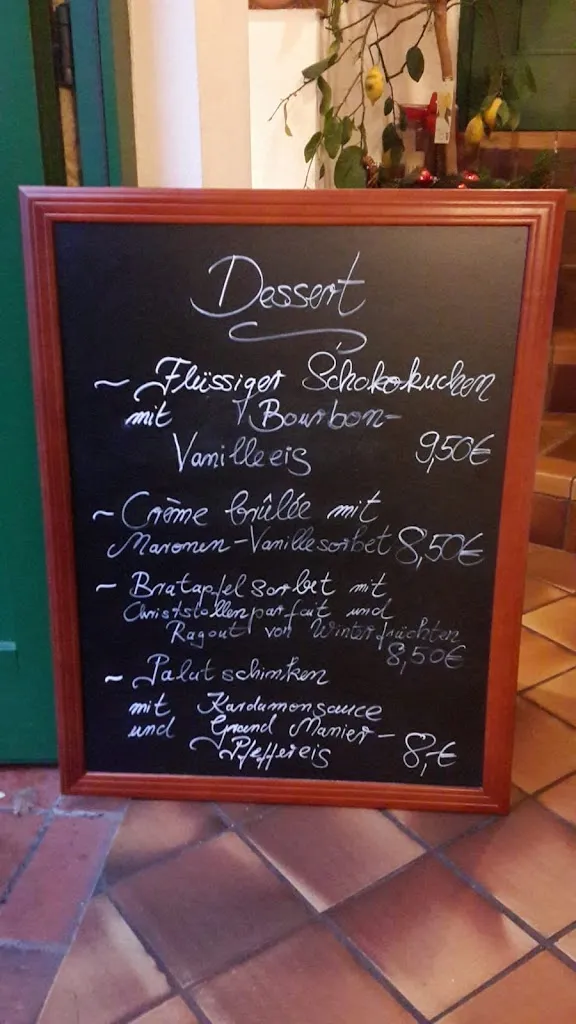 Dessert
~ Flüssiger Schokokuchen
mit Bourbon-
Vanilleeis 9,50€
~ Crème brûlée mit
Maronen-Vanillesorbet 8,50€
~ Bratapfelsorbet mit
Christstollenparfait und
Ragout von Winterfrüchten
8,50€
~ Palatschinken
mit Kardamonsauce
und Grand Manier-
Pfeffereis 8,-€